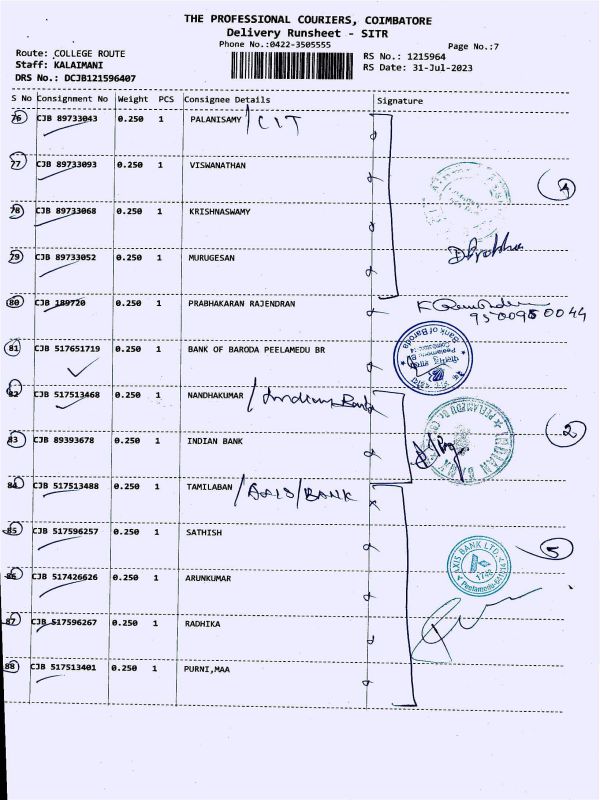 THE PROFESSIONAL COURIERS, COIMBATORE
Delivery Runsheet - SITR
Phone No.:0422-3505555
Page No.:7
Route: COLLEGE ROUTE
RS No.: 1215964
Staff: KALAIMANI
RS Date: 31-Jul-2023
DRS No.: DCJB121596407
S No Consignment No Weight PCS Consignee Details Signature
76 CJB 89733043 0.250 1 PALANISAMY / CIT
77 CJB 89733093 0.250 1 VISWANATHAN
4
78 CJB 89733068 0.250 1 KRISHNASWAMY
79 CJB 89733052 0.250 1 MURUGESAN
80 CJB 189720 0.250 1 PRABHAKARAN RAJENDRAN
81 CJB 517651719 0.250 1 BANK OF BARODA PEELAMEDU BR
Bank of Baroda
82 CJB 517513468 0.250 1 NANDHAKUMAR / Indian Bank
2
83 CJB 89393678 0.250 1 INDIAN BANK
84 CJB 517513488 0.250 1 TAMILABAN / AXIS / BANK
85 CJB 517596257 0.250 1 SATHISH
5
AXIS BANK LTD.
1748
86 CJB 517426626 0.250 1 ARUNKUMAR
87 CJB 517596267 0.250 1 RADHIKA
88 CJB 517513401 0.250 1 PURNI,MAA